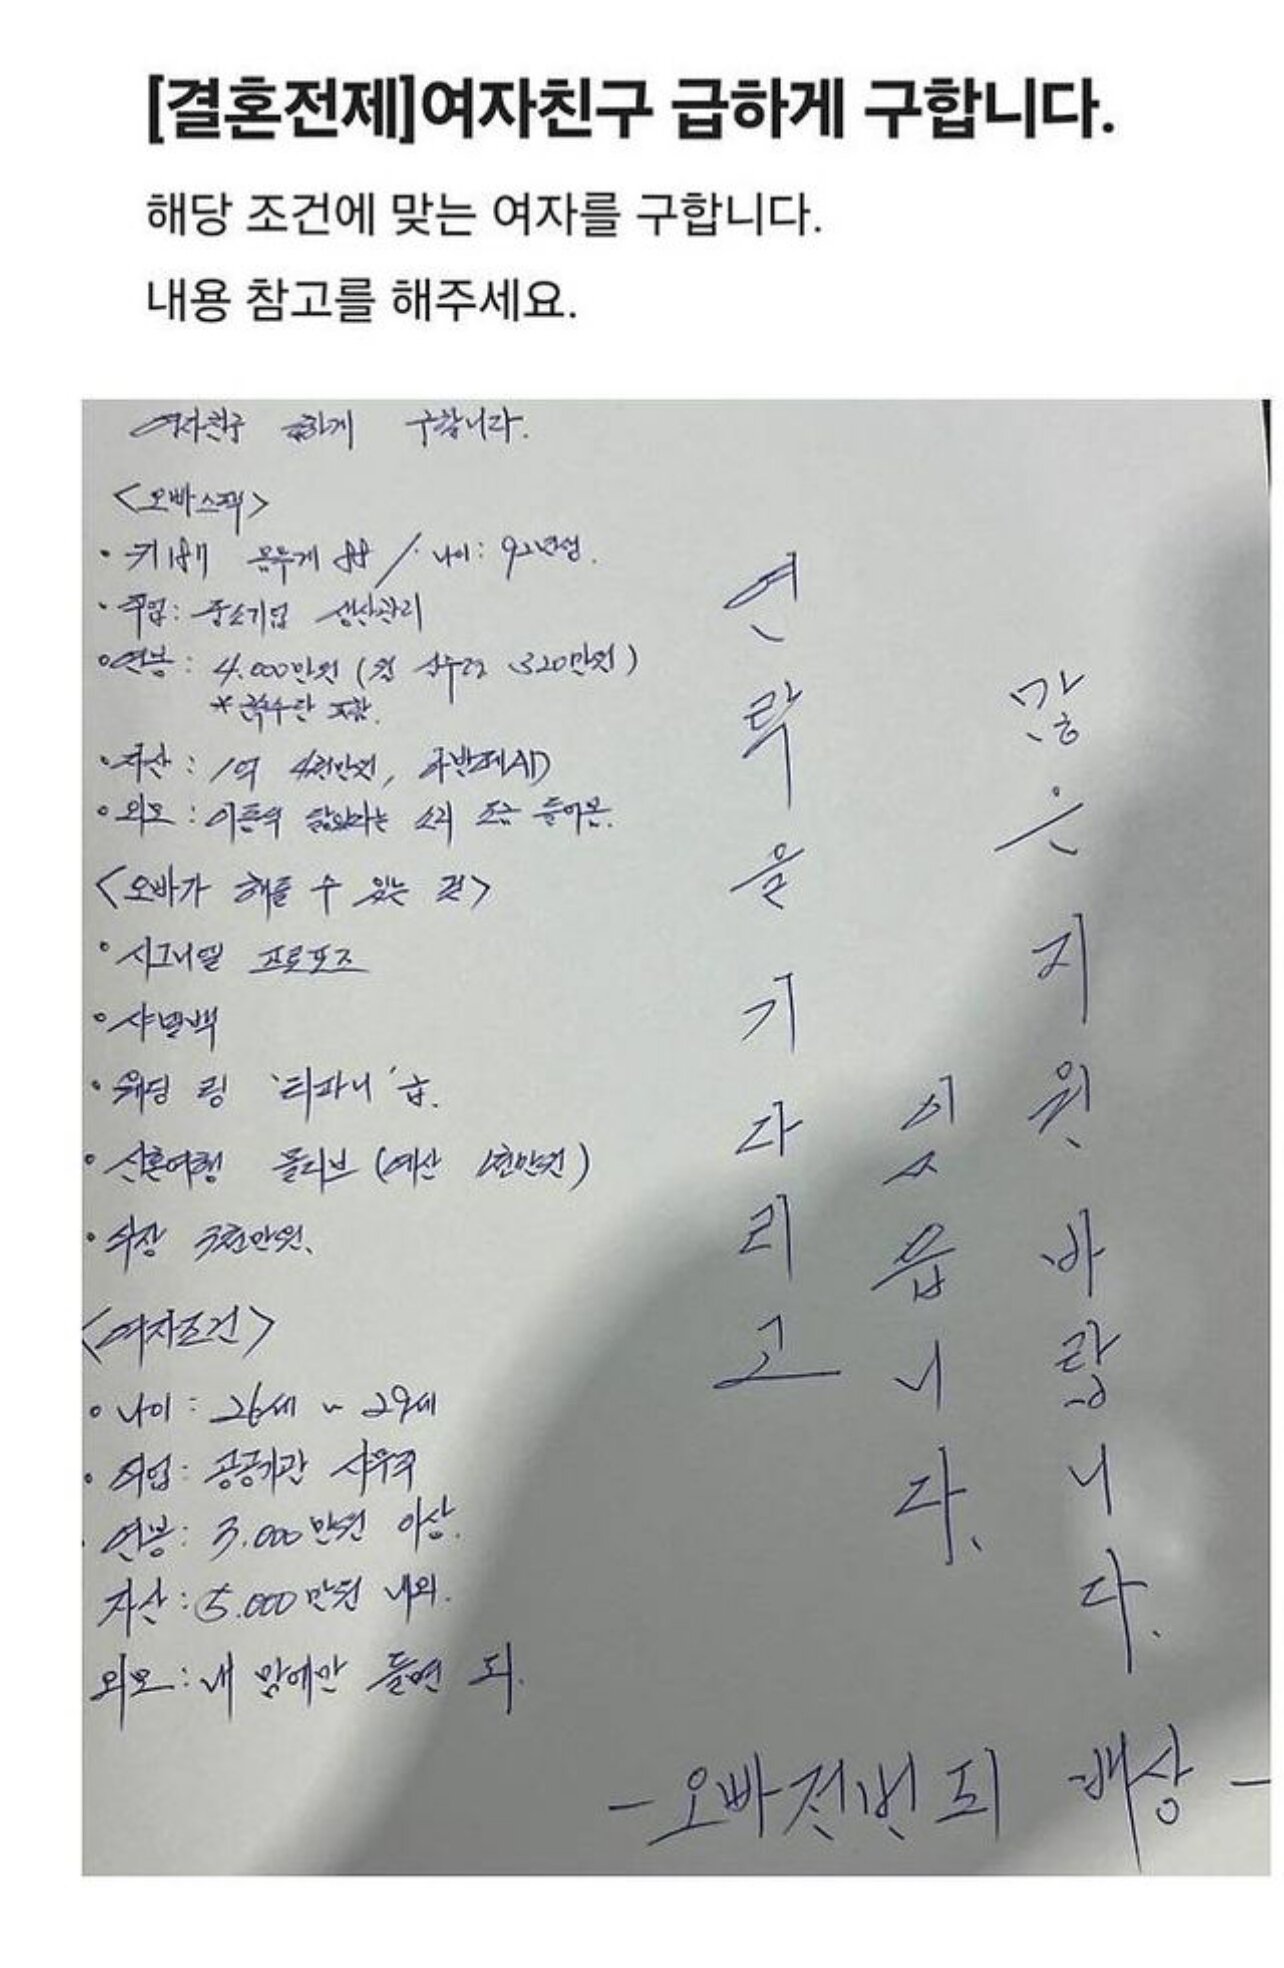 [결혼전제]여자친구 급하게 구합니다.
해당 조건에 맞는 여자를 구합니다.
내용 참고를 해주세요.
여자친구 급하게 구합니다.
<오빠스펙>
• 키 187 몸무게 88 / 나이: 92년생.
• 직업: 중소기업 생산관리
• 연봉: 4.000만원 (월 실수령 320만원)
* 특수당 포함.
• 자산: 1억 4천만원, 아반떼AD
• 외모: 이준혁 닮았다는 소리 조금 들어봄.
<오빠가 해줄 수 있는 것>
• 시그니엘 프로포즈
• 샤넬백
• 웨딩 링 '티파니' 급.
• 신혼여행 몰디브 (예산 1천만원)
• 식장 3천만원.
<여자조건>
• 나이: 26세 ~ 29세
• 직업: 공공기관 사무직
• 연봉: 3.000만원 이상.
자산: 5.000만원 내외.
외모: 내 맘에만 들면 되.
연락을 기다리고
있읍니다.
많은 지원 바랍니다.
- 오빠전번 되 배상 -